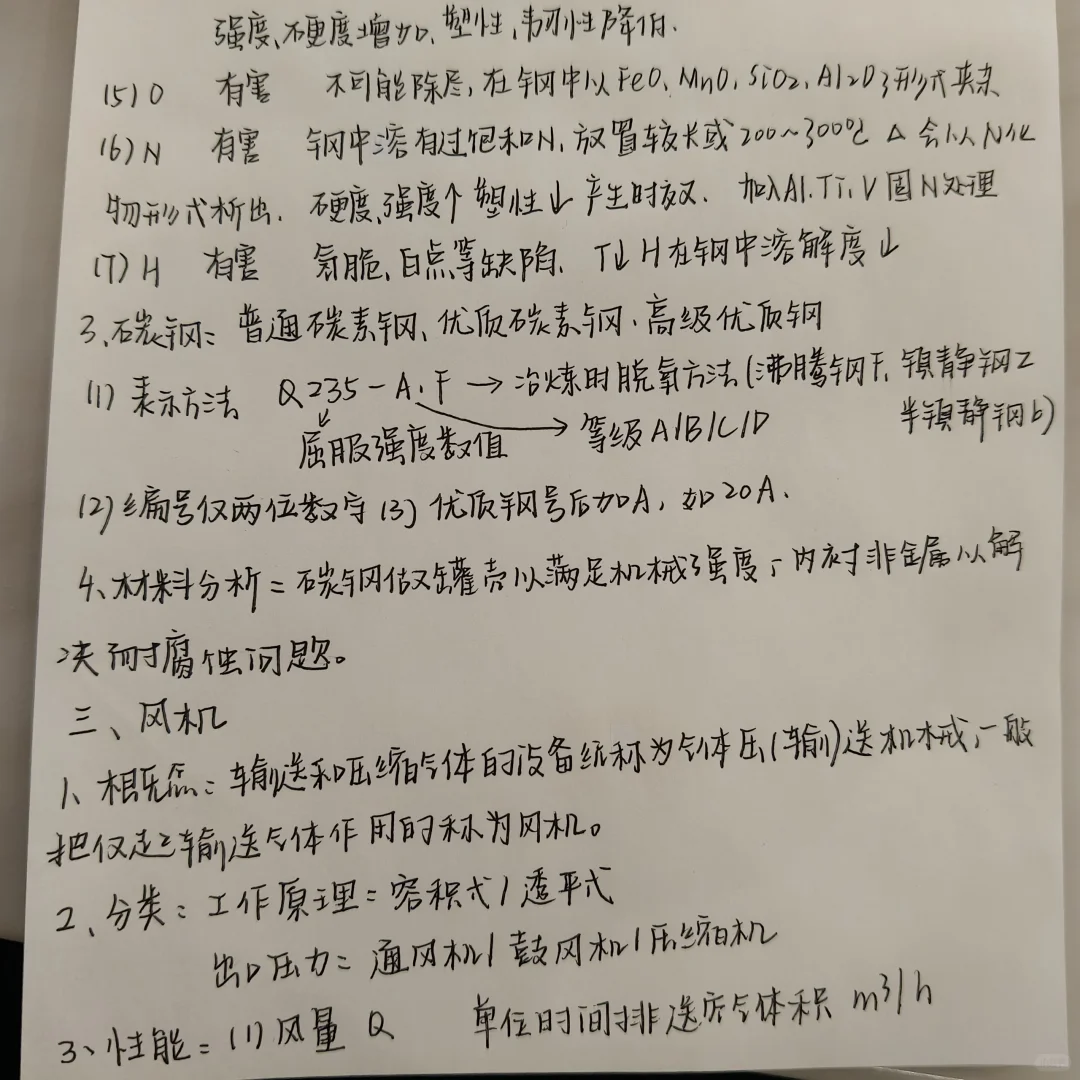 强度、硬度增加、塑性、韧性降低.
(5) O 有害 不可能除尽, 在钢中以FeO、MnO、SiO2、Al2O3形式夹杂
(6) N 有害 钢中溶有过饱和N, 放置较长或200~300℃ △ 会以N化
物形式析出. 硬度、强度个 塑性↓ 产生时效. 加入Al、Ti、V 固N处理
(7) H 有害 氢脆、白点等缺陷. T↓ H在钢中溶解度↓
3、碳钢: 普通碳素钢、优质碳素钢、高级优质钢
(1) 表示方法 Q235-A·F → 冶炼时脱氧方法(沸腾钢F, 镇静钢Z
屈服强度数值 → 等级A/B/C/D 半镇静钢b)
(2) 编号仅两位数字 (3) 优质钢号后加A, 如20A.
4、材料分析: 碳钢做罐壳以满足机械强度, 内衬非金属以解
决耐腐蚀问题。
三、风机
1、概念: 输送和压缩气体的设备统称为气体压(输)送机械, 一般
把仅起输送气体作用的称为风机。
2、分类: 工作原理: 容积式/透平式
出口压力: 通风机/鼓风机/压缩机
3、性能: (1) 风量 Q 单位时间排送空气体积 m³/h